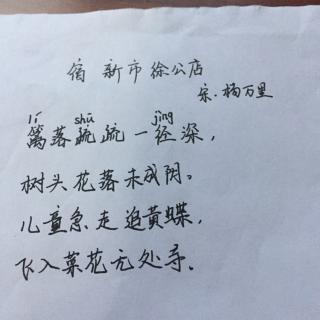 宿新市徐公店
宋·杨万里
lí shū jìng
篱落疏疏一径深，
树头花落未成阴。
儿童急走追黄蝶，
飞入菜花无处寻。